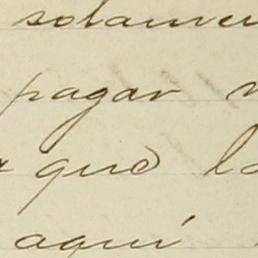 solamen
pagar
que
aquí